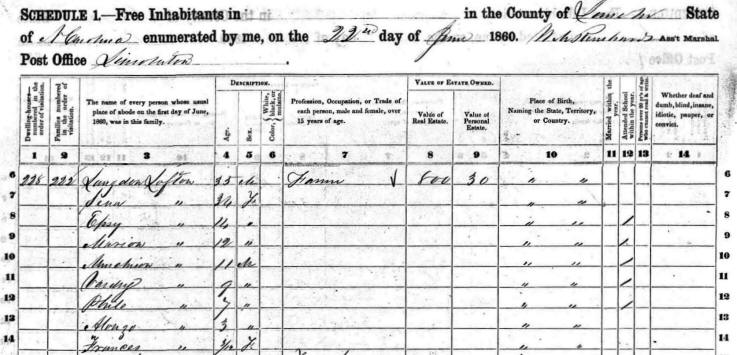 SCHEDULE 1.—Free Inhabitants in in the County of Lincoln State
of N Carolina enumerated by me, on the 22nd day of June 1860. Ass't Marshal
Post Office Lincolnton
Dwelling-houses—numbered in the order of visitation.
Families numbered in the order of visitation.
The name of every person whose usual place of abode on the first day of June, 1860, was in this family.
DESCRIPTION.
Age.
Sex.
Color, { White, black, or mulatto.
Profession, Occupation, or Trade of each person, male and female, over 15 years of age.
VALUE OF ESTATE OWNED.
Value of Real Estate.
Value of Personal Estate.
Place of Birth, Naming the State, Territory, or Country.
Married within the year.
Attended School within the year.
Persons over 20 y'rs of age who cannot read & write.
Whether deaf and dumb, blind, insane, idiotic, pauper, or convict.
1 2 3 4 5 6 7 8 9 10 11 12 13 14
6 228 222 Langdon Lofton 35 M Farmer 800 30 " " 6
7 " 34 F " " 7
8 Epsy " 14 " " " / 8
9 Marion " 12 " " " / 9
10 " 11 M " " / 10
11 " 9 " " " / 11
12 Philo " 7 " " " / 12
13 Alonzo " 3 " " " 13
14 Frances " F " " 14